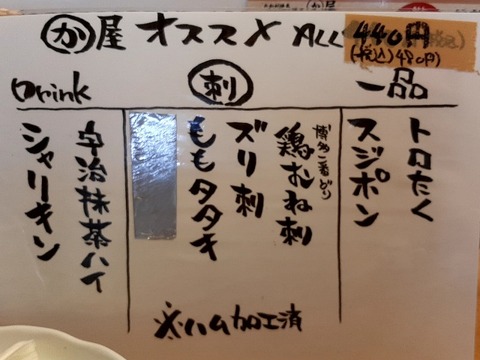 か屋 オススメ ALL 440円
(税込)480円)
一品
トロたく
スジポン
刺
博多一番どり
鶏むね刺
ズリ刺
ももタタキ
※ハム加工済
Drink
宇治抹茶ハイ
シャリキン